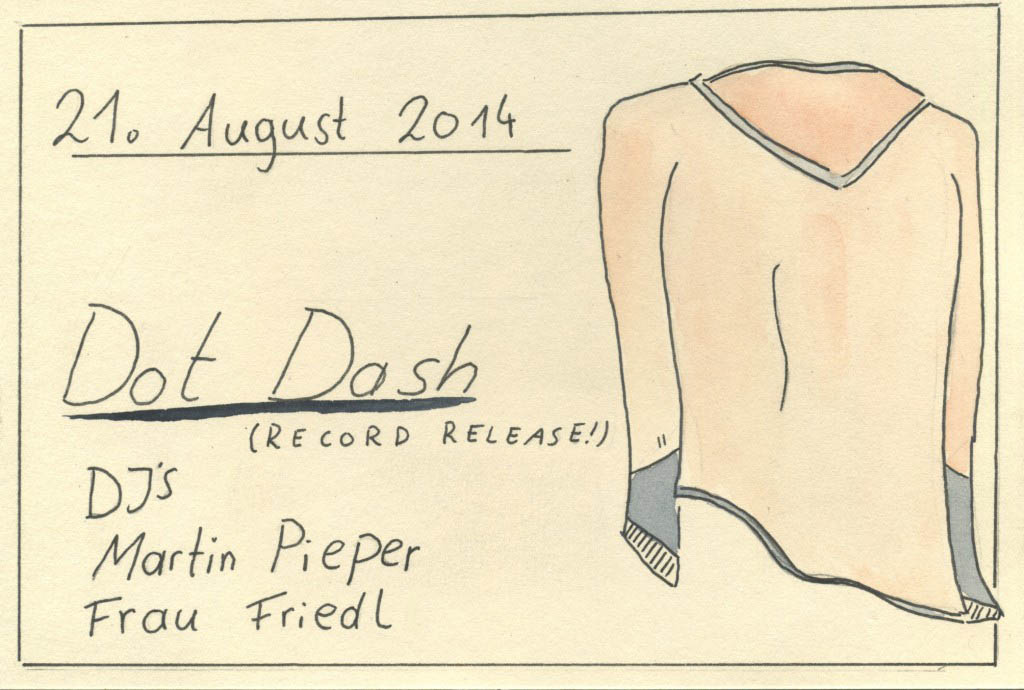 21. August 2014
Dot Dash
(RECORD RELEASE!)
DJ's
Martin Pieper
Frau Friedl